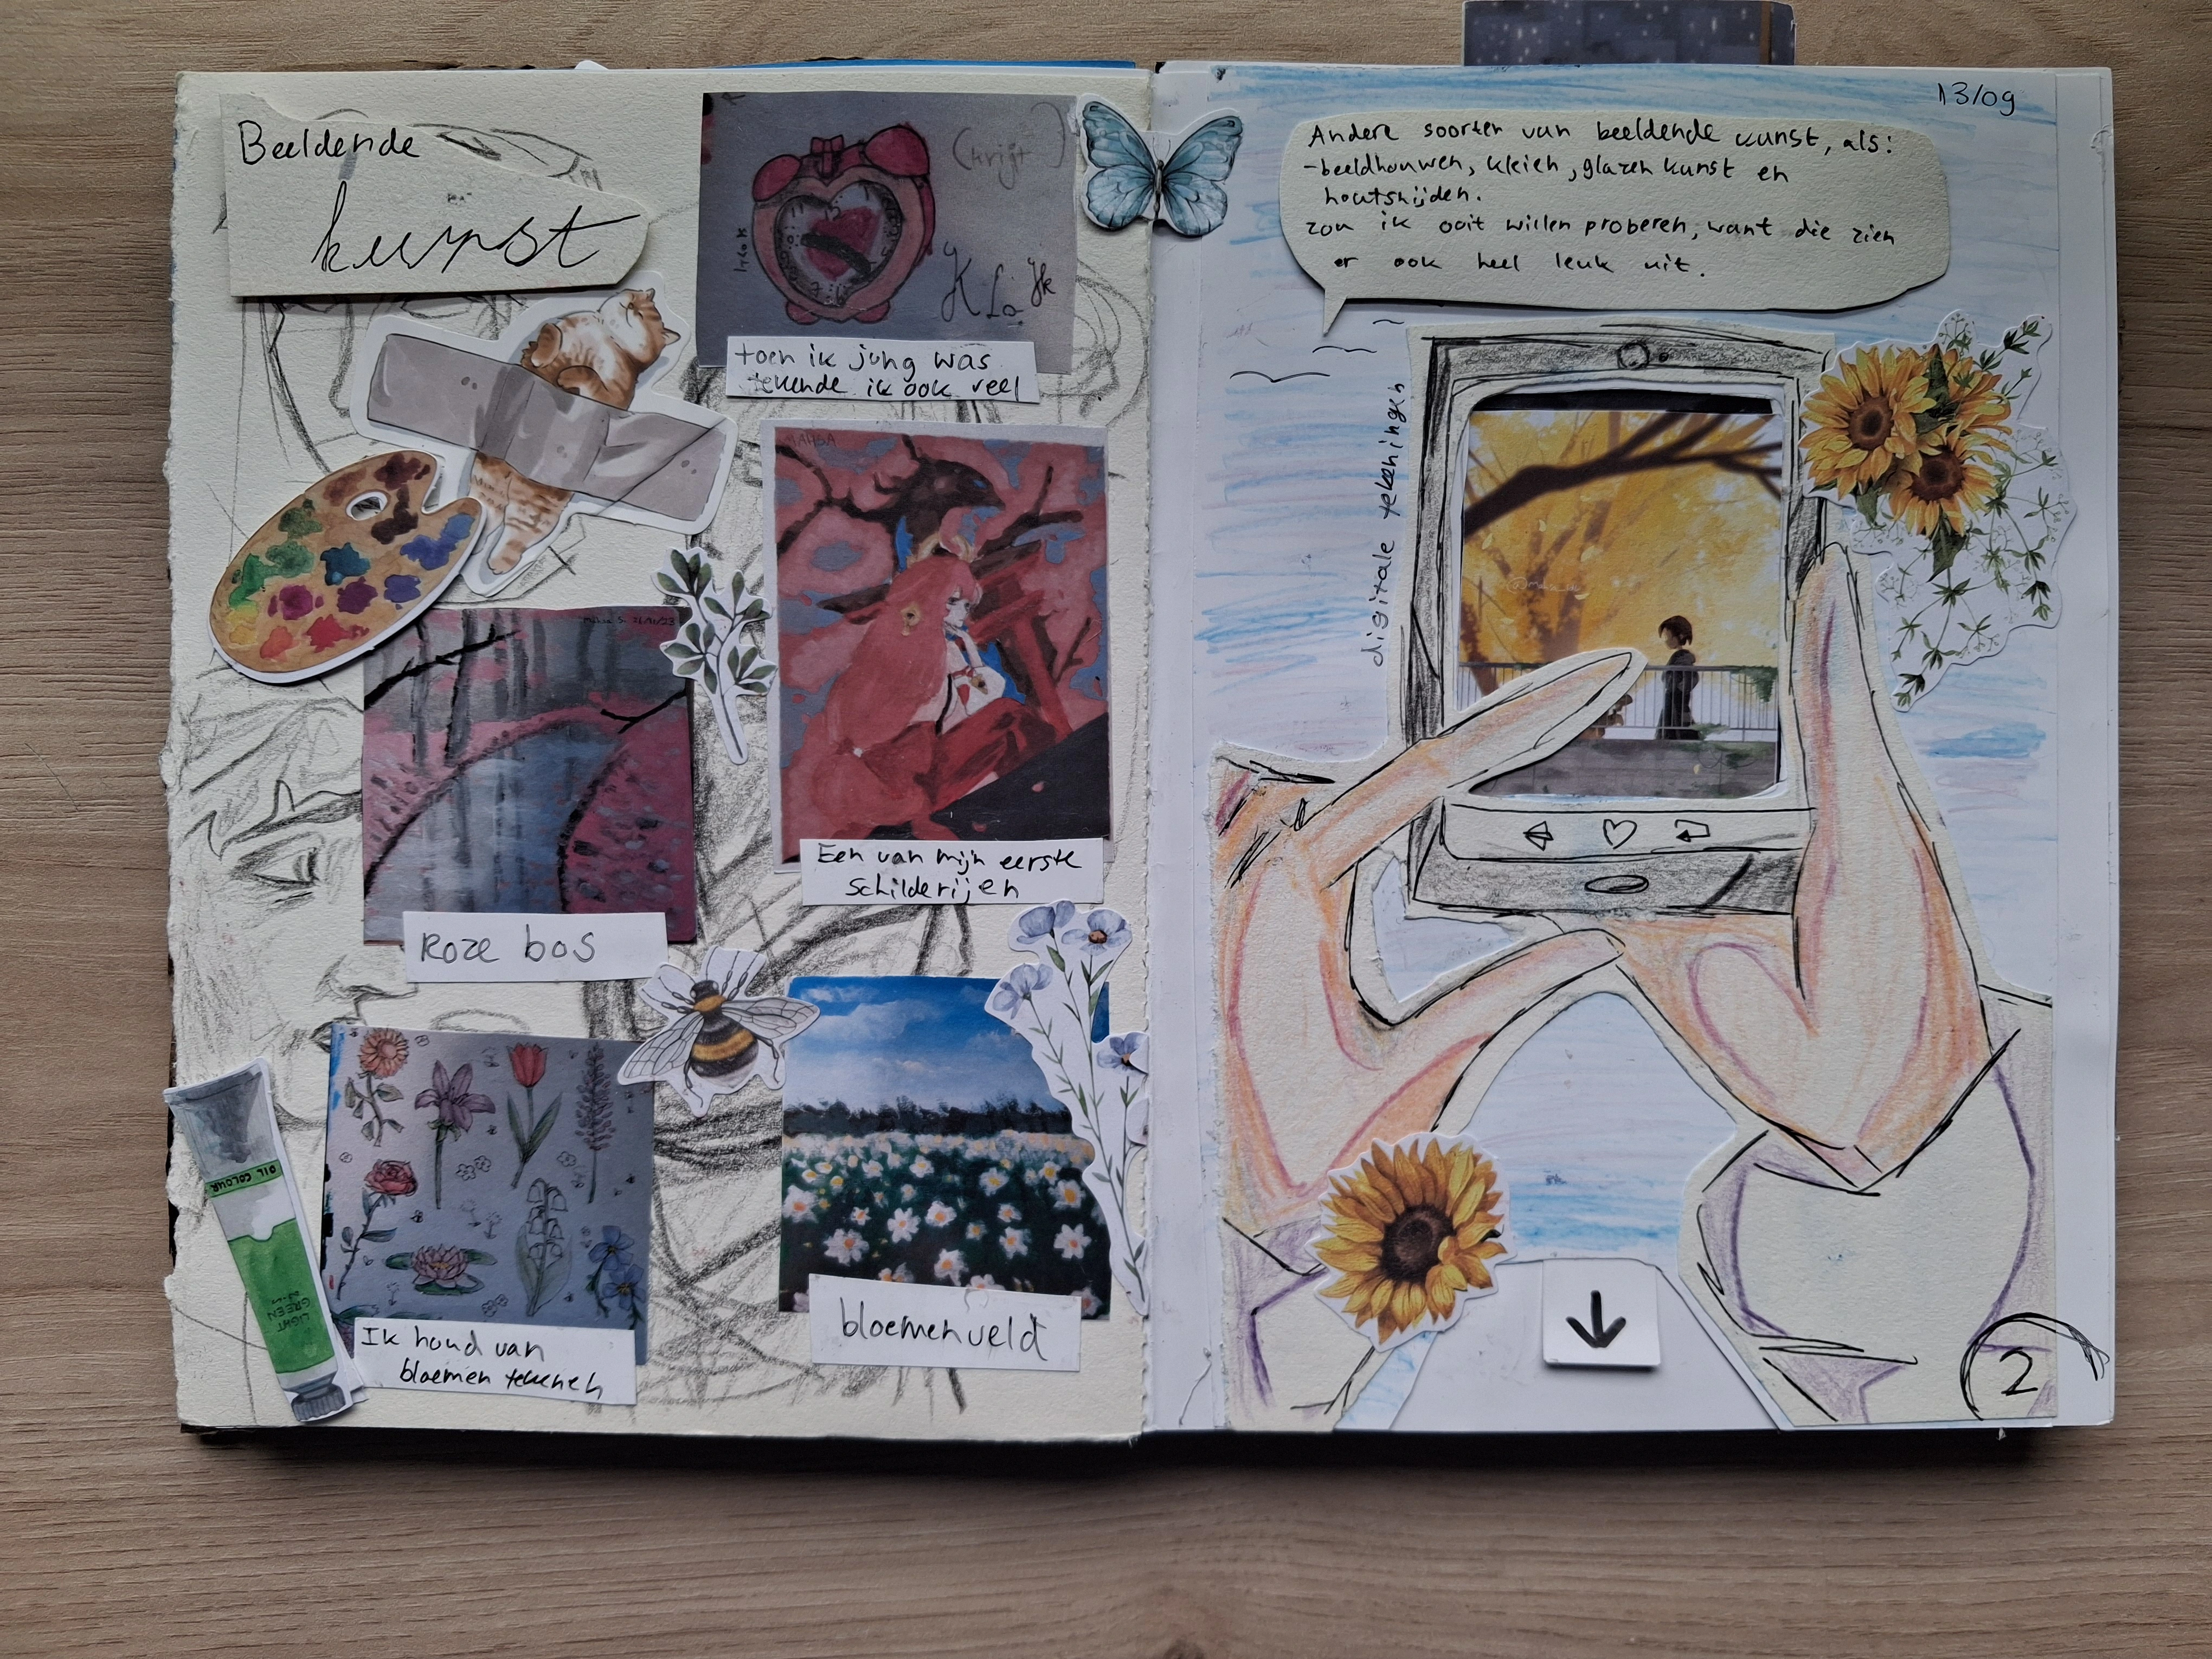 Beeldende
kunst
(krijt)
Klok
toen ik jung was
tekende ik ook veel
MAHSA
Een van mijn eerste
schilderijen
Roze bos
OIL COLOUR
LIGHT
GREEN
Ik houd van
bloemen tekenen
bloemenveld
13/09
Andere soorten van beeldende kunst, als:
-beeldhouwen, kleien, glazen kunst en
houtsnijden.
zou ik ooit willen proberen, want die zien
er ook heel leuk uit.
digitale tekeningen
2